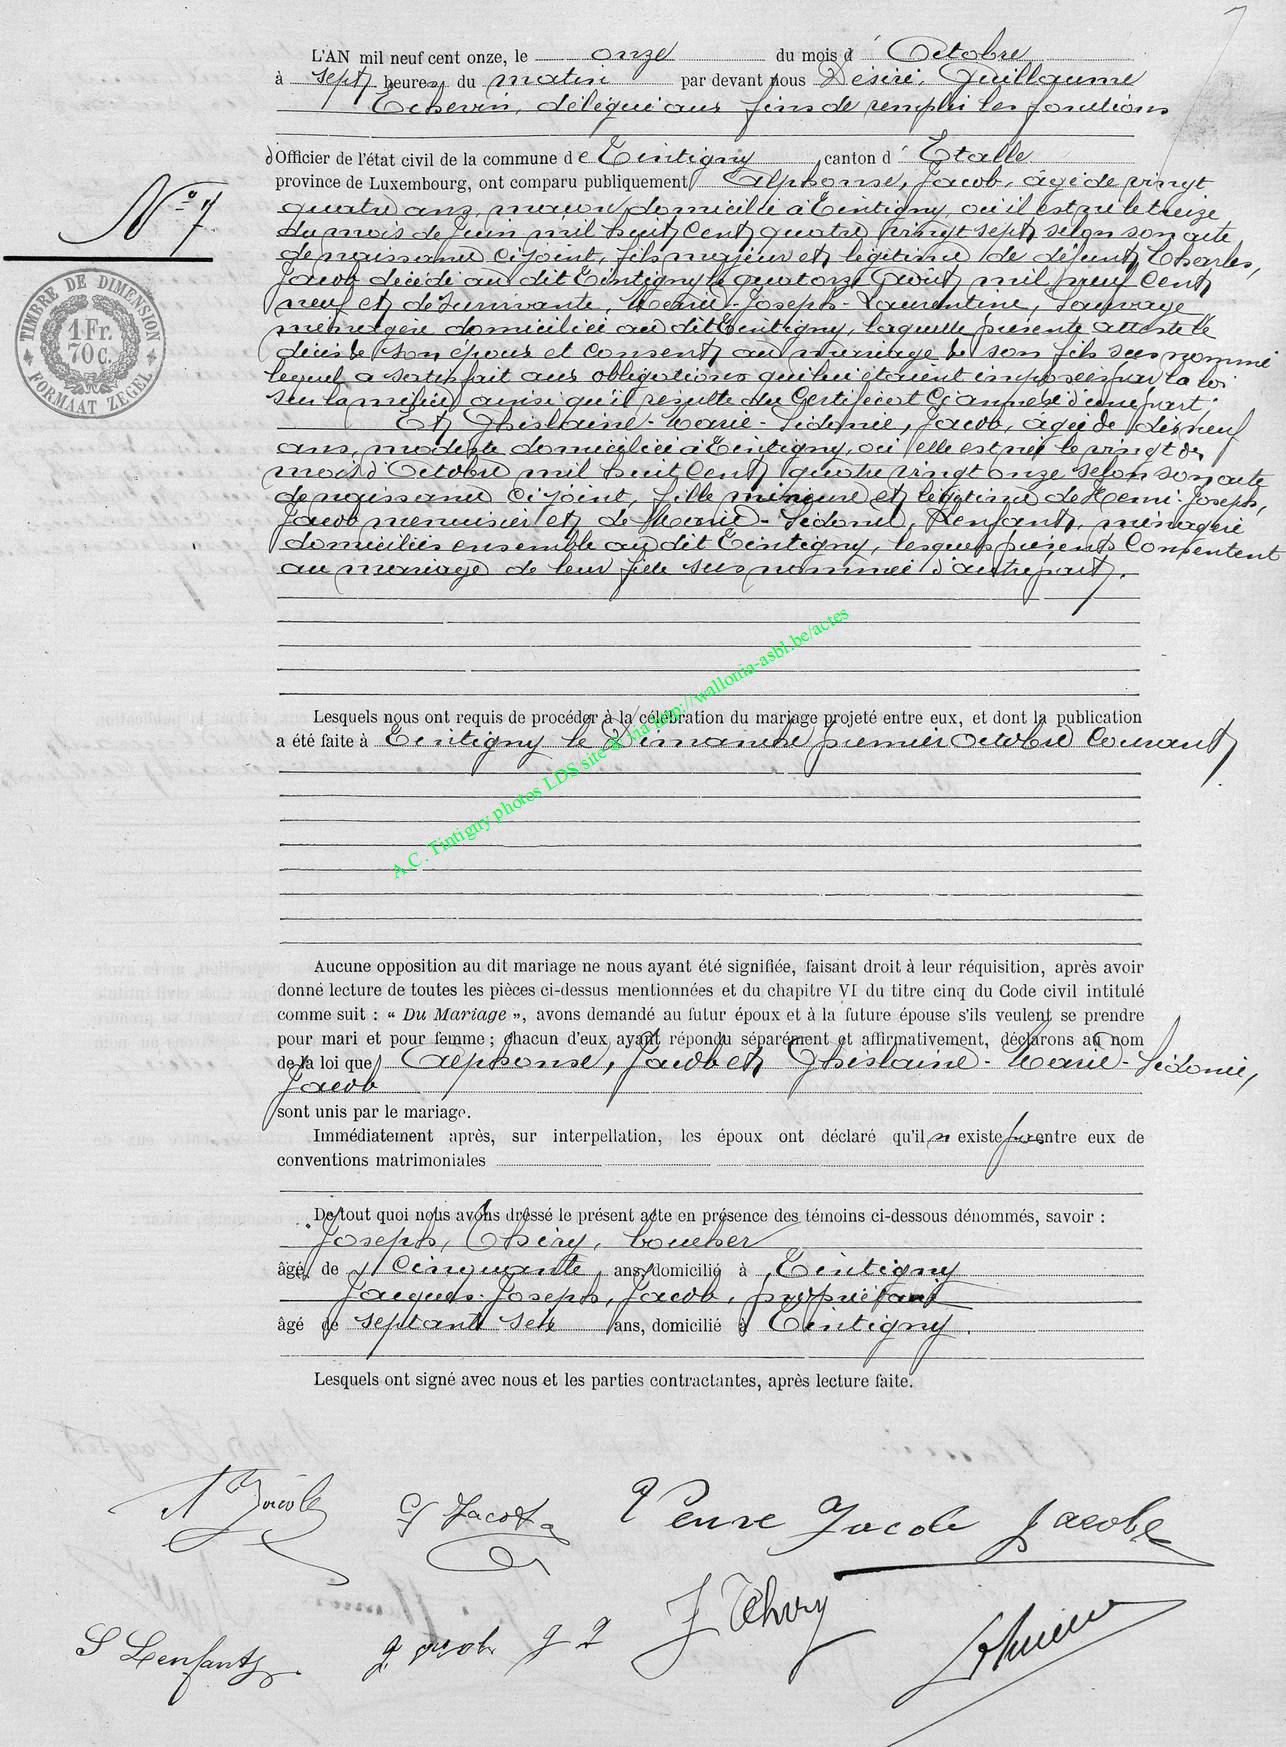 L'AN mil neuf cent onze, le onze du mois d' Octobre
à sept heures du matin par devant nous Désiré, Guillaume
Echevin, délégué aux fins de remplir les fonctions
d'Officier de l'état civil de la commune de Tintigny canton d' Etalle
province de Luxembourg, ont comparu publiquement Alphonse, Jacob, âgé de vingt
quatre ans, maçon domicilié à Tintigny, où il est né le treize
du mois de Juin mil huit cent quatre vingt sept selon son acte
de naissance ci joint, fils majeur et légitime de défunt Charles,
Jacob décédé au dit Tintigny le quatorze Août mil neuf cent
neuf et de survivante, Marie-Joseph-Laurentine, Sauvage
ménagère domiciliée au dit Tintigny, laquelle présente atteste le
décès de son époux et consent au mariage de son fils sus nommé
lequel a satisfait aux obligations qui lui étaient imposées par la loi
sur la milice ainsi qu'il résulte du Certificat ci annexé d'une part;
Et Ghislaine-Marie-Sidonie, Jacob, âgée de dix neuf
ans, modiste domiciliée à Tintigny, où elle est née le vingt du
mois d'Octobre mil huit cent quatre vingt onze selon son acte
de naissance ci joint, fille mineure et légitime de Henri-Joseph,
Jacob menuisier et de Marie-Sidonie, Lenfant, ménagère
domiciliés ensemble au dit Tintigny, lesquels présents consentent
au mariage de leur fille sus nommée d'autre part.
N° 7
TIMBRE DE DIMENSION
1 Fr.
70 c.
FORMAAT ZEGEL
Lesquels nous ont requis de procéder à la célébration du mariage projeté entre eux, et dont la publication
a été faite à Tintigny le Dimanche premier Octobre Courant
A.C. Tintigny photos LDS site & via http://wallonia-asbl.be/actes
Aucune opposition au dit mariage ne nous ayant été signifiée, faisant droit à leur réquisition, après avoir
donné lecture de toutes les pièces ci-dessus mentionnées et du chapitre VI du titre cinq du Code civil intitulé
comme suit : « Du Mariage », avons demandé au futur époux et à la future épouse s'ils veulent se prendre
pour mari et pour femme ; chacun d'eux ayant répondu séparément et affirmativement, déclarons au nom
de la loi que Alphonse, Jacob et Ghislaine-Marie-Sidonie,
Jacob
sont unis par le mariage.
Immédiatement après, sur interpellation, les époux ont déclaré qu'il n existe pas entre eux de
conventions matrimoniales
De tout quoi nous avons dressé le présent acte en présence des témoins ci-dessous dénommés, savoir :
Joseph, Thiry, boucher
âgé de cinquante ans, domicilié à Tintigny
Jacques-Joseph, Jacob, propriétaire
âgé de septante ans, domicilié à Tintigny.
Lesquels ont signé avec nous et les parties contractantes, après lecture faite.
A Jacob G Jacob Veuve Jacob Jacob
S Lenfant J Jacob J J J Thiry